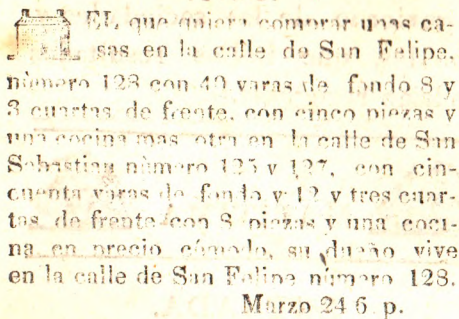 EL que quiera comprar unas ca-
sas en la calle de San Felipe,
nùmero 128 con 40 varas de fondo 8 y
3 cuartas de frente, con cinco piezas y
una cocina mas otra en la calle de San
Sebastian nùmero 125 y 127, con cin-
cuenta varas de fondo y 12 y tres cuar-
tas de frente con 8 piezas y una coci-
na en precio còmodo, su dueño vive
en la calle de San Felipe nùmero 128.
Marzo 24 6. p.